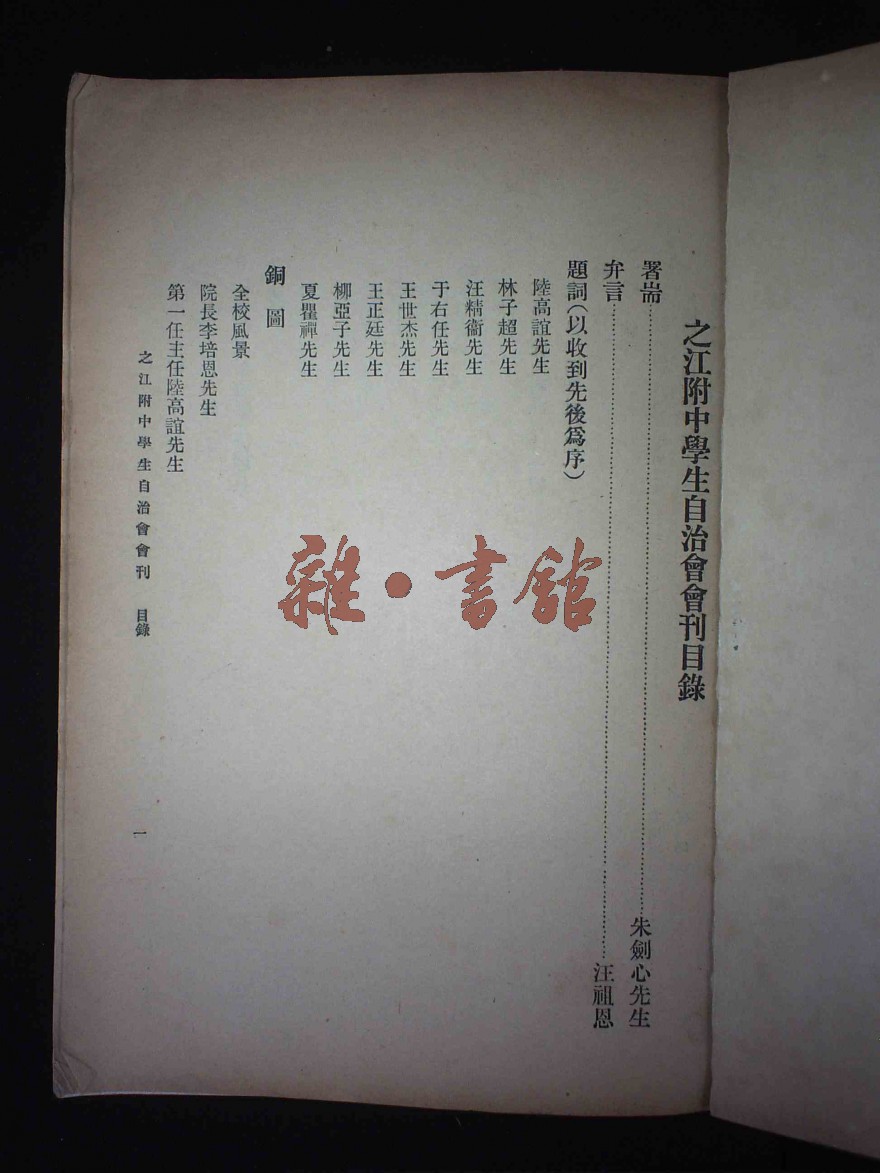 之江附中學生自治會會刊目錄
署耑……朱劍心先生
弁言……汪祖恩
題詞(以收到先後爲序)
陸高誼先生
林子超先生
汪精衞先生
于右任先生
王世杰先生
王正廷先生
柳亞子先生
夏瞿禪先生
銅圖
全校風景
院長李培恩先生
第一任主任陸高誼先生
之江附中學生自治會會刊 目錄
一
雜·書館